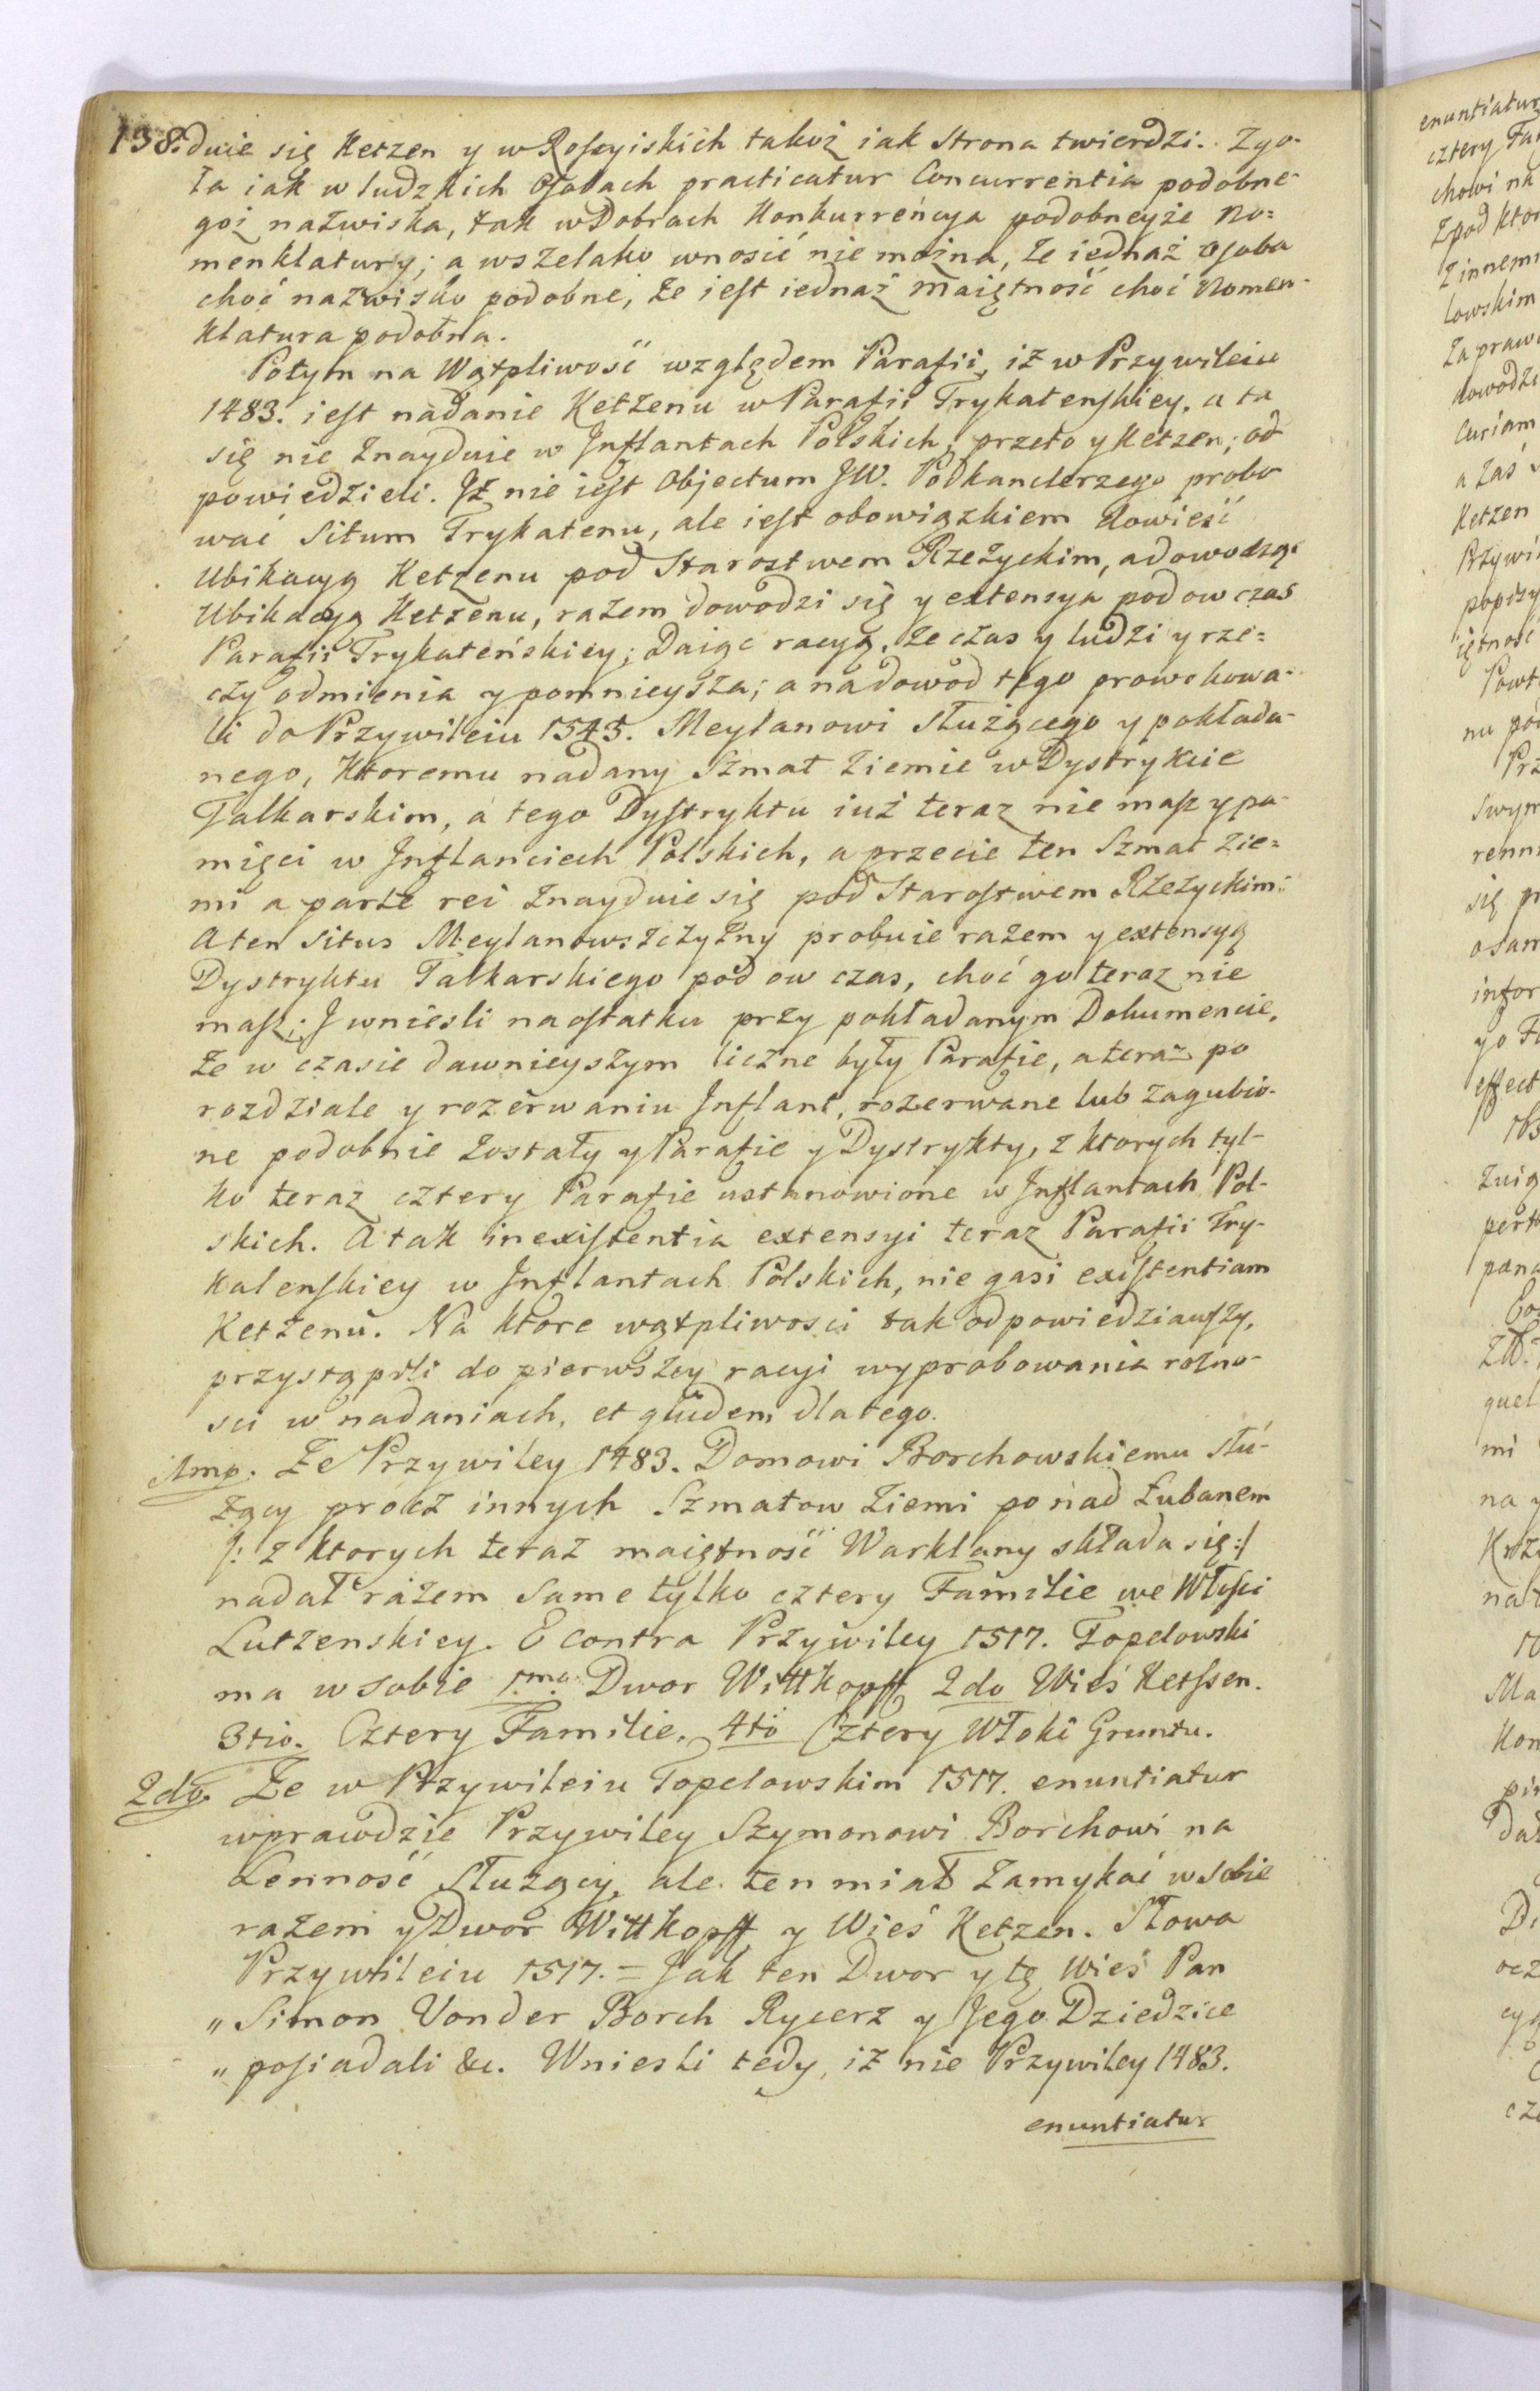 138. duie się Ketzen y w Rossyiskich takoż iak Strona twierdzi. Zgo-
ła iak w ludzkich Osobach practicatur Concurrentia podobne-
goż nazwiska, tak w Dobrach Konkurreńcya podobneyże No=
menklatury; a wszelako wnosić nie można, że iednaż Osoba
choć nazwisko podobne, że iest iednaż Maiętność choć Nomen-
klatura podobna.
Potym na Wątpliwość względem Parafii, iż w Przywileiu
1483. iest nadanie Ketzenu w Parafii Trykatenskiey, a ta
się nie znayduie w Inflantach Polskich, przeto y Ketzen; od
powiedzieli. Iż nie iest Objectum JW. Podkanclerzego probo
wać Situm Trykatenu, ale iest obowiązkiem dowieść
Ubikacyą Ketzenu pod Starostwem Rzeżyckim, a dowodząc
Ubikacyą Ketzenu, razem dowodzi się y extensya pod ow czas
Parafii Trykateńskiey; Daiąc racyą, że czas y ludzi y rze=
czy odmienia y pomnieysza; a na dowod tego prowokowa-
li do Przywileiu 1545. Meylanowi służącego y pokłada-
nego, ktoremu nadany Szmat ziemie w Dystrykcie
Talkarskim, a tego Dystryktu iuż teraz nie masz y pa-
mięci w Inflanciech Polskich, a przecie ten Szmat zie=
mi a parte rei znayduie się pod Starostwem Rzeżyckim.
A ten Situs Meylanowszczyzny probuie razem y extensyą
Dystryktu Talkarskiego pod ow czas, choć go teraz nie
masz; I wniesli na ostatku przy pokładanym Dokumencie,
że w czasie dawnieyszym liczne były Parafie, a teraz po
rozdziale y rozerwaniu Inflant, rozerwane lub zagubio-
ne podobnie zostały y Parafie y Dystrykty, z ktorych tyl-
ko teraz cztery Parafie ustanowione w Inflantach Pol-
skich. A tak inexistentia extensyi teraz Parafii Try-
katenskiey w Inflantach Polskich, nie gasi existentiam
Ketzenu. Na ktore wątpliwosci tak odpowiedziawszy,
przystąpili do pierwszey racyi wyprobowania rożno-
sci w nadaniach, et quidem dlatego.
1mo. Że Przywiley 1483. Domowi Borchowskiemu słu-
żący procz innych Szmatow ziemi ponad Łubanem
/: z ktorych teraz maiętność Warklany składa się :/
nadał razem same tylko cztery Familie we Włosci
Lutzenskiey. E contra Przywiley 1517. Topelowski
ma w sobie 1mo. Dwor Wittkopff 2do Wieś Ketssen.
3tio. Cztery Familie. 4to Cztery Włoki Gruntu.
2do. Że w Przywileiu Topelowskim 1517. enuntiatur
wprawdzie Przywiley Szymonowi Borchowi na
Lenność służący, ale ten miał zamykać w sobie
razem y Dwor Wittkopff y Wieś Ketzen. Słowa
Przywileiu 1517. = Jak ten Dwor y tę Wieś Pan
„ Simon Vonder Borch Rycerz y Jego Dziedzice
„ posiadali &c. Wniesli tedy, iż nie Przywiley 1483.
enuntiatur